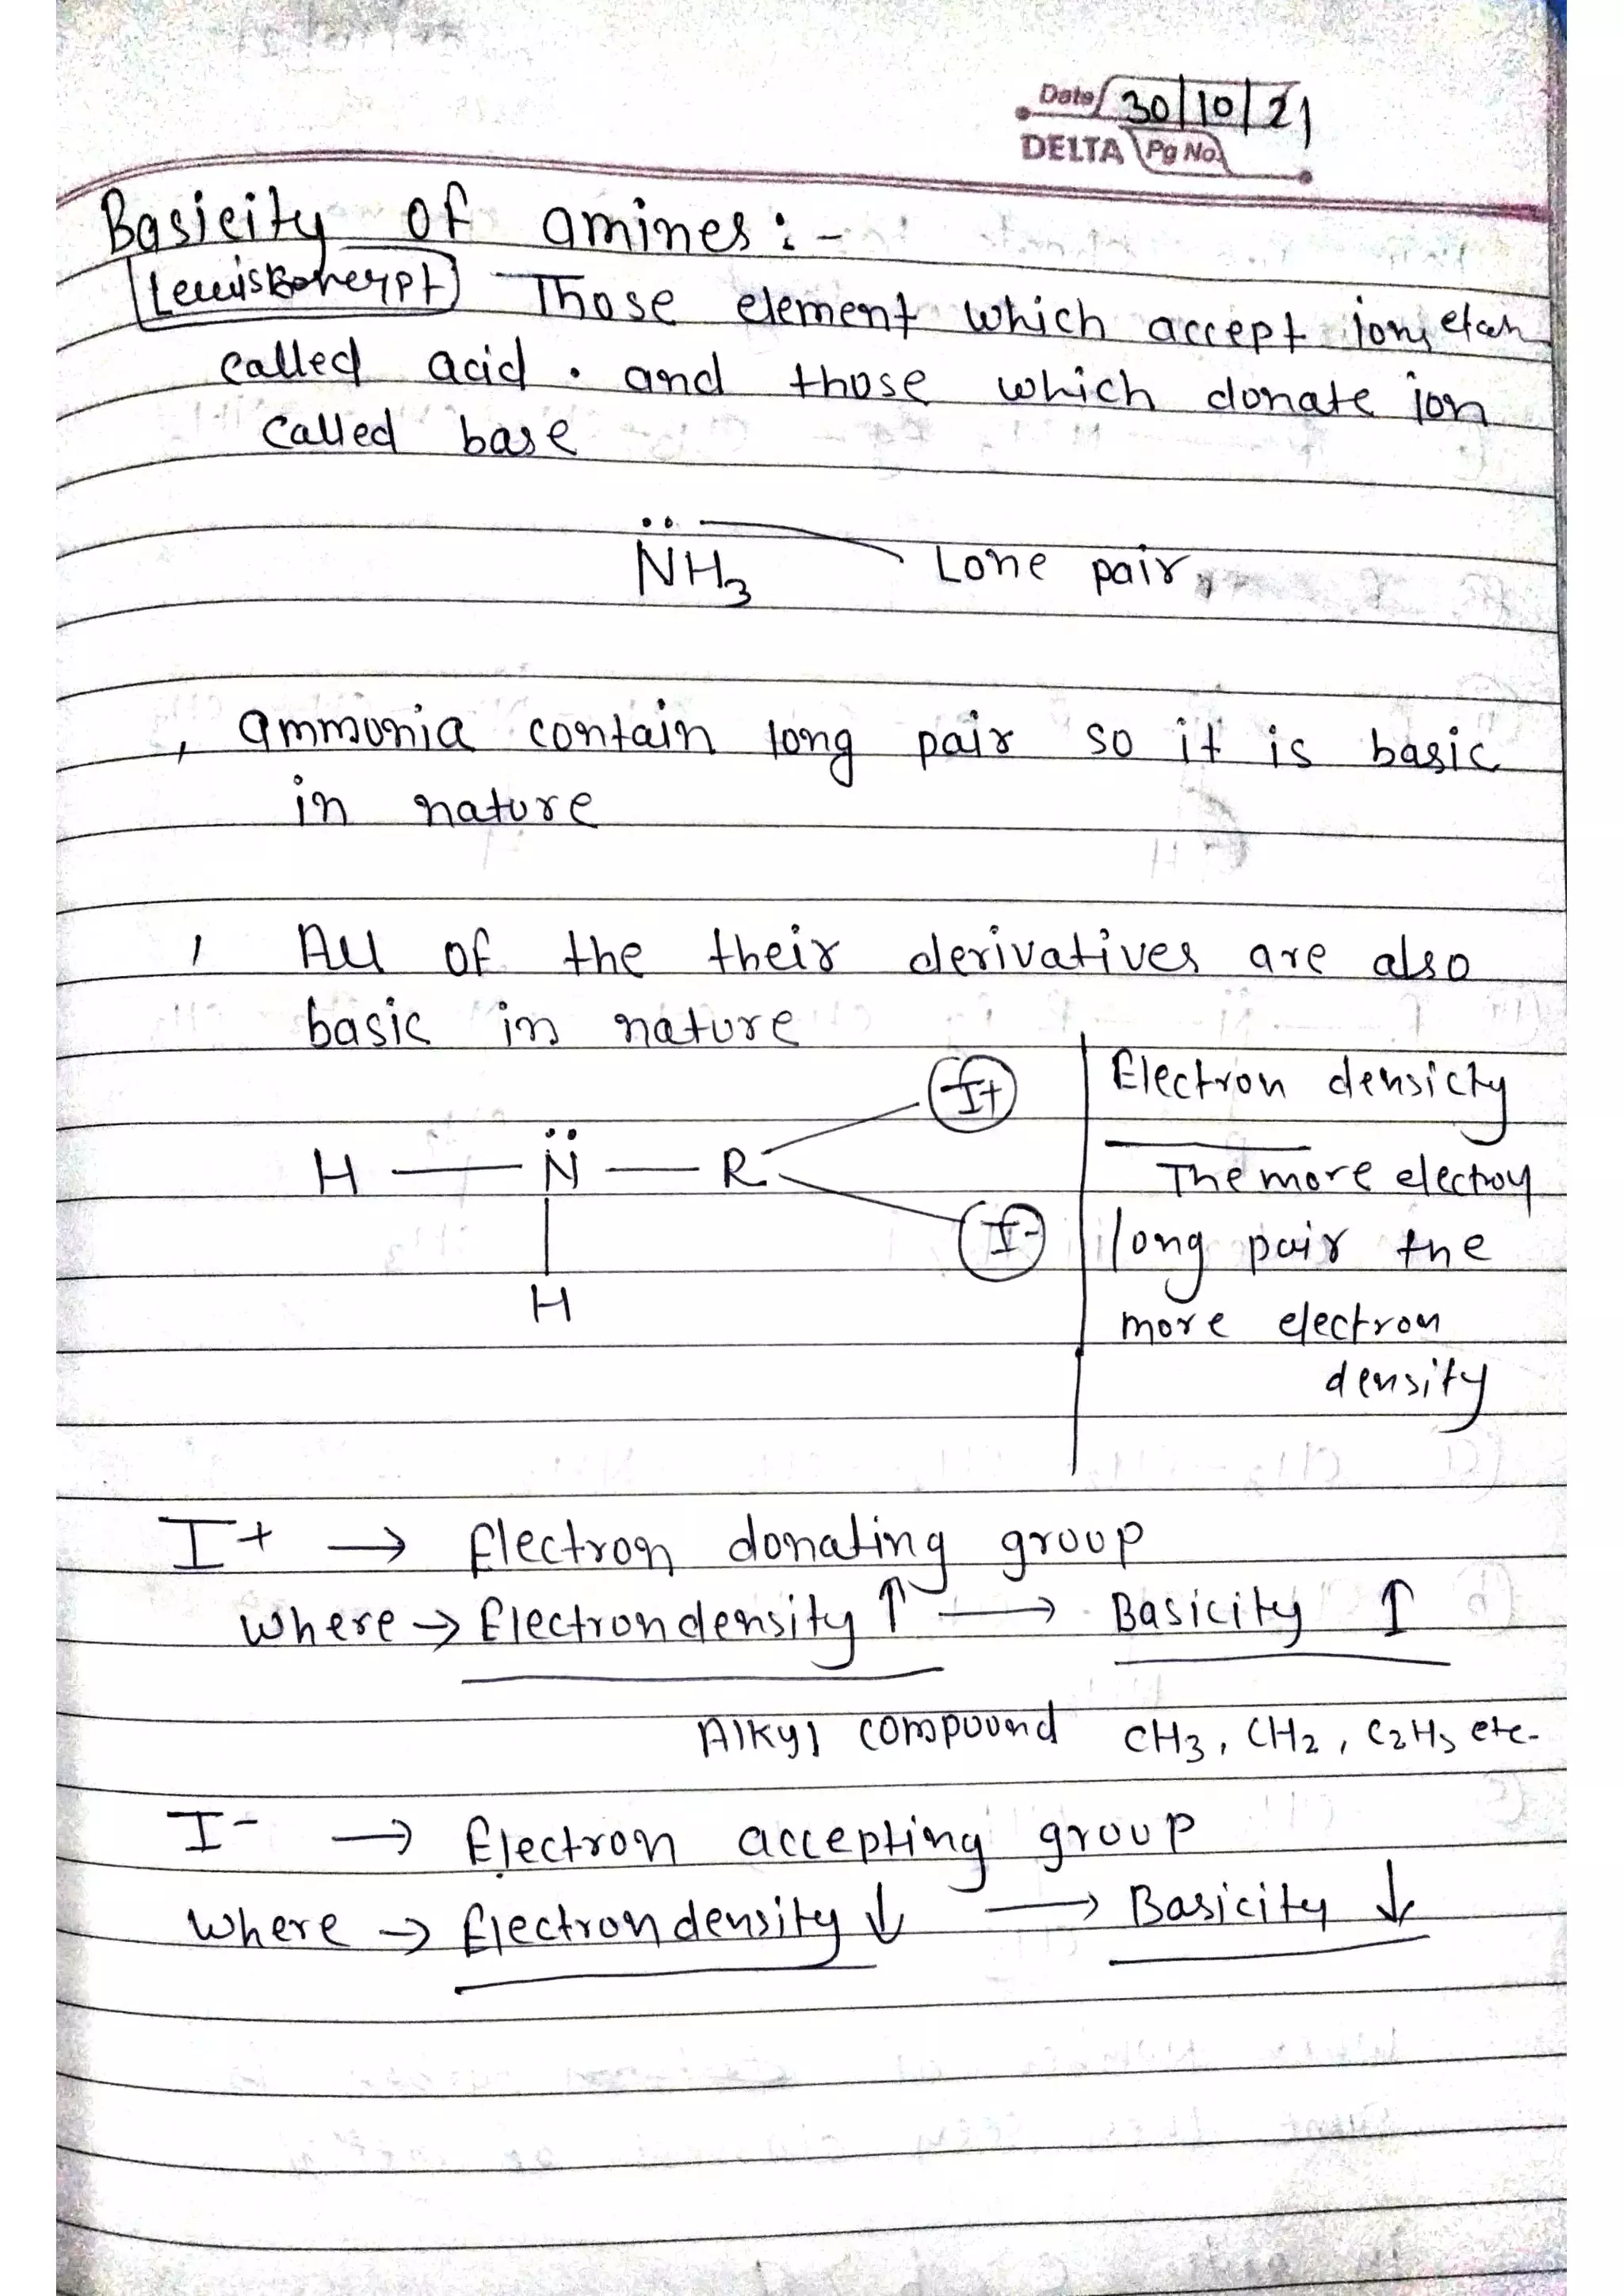 Date 30/10/21
DELTA Pg No.
Basicity of amines:-
Those element which accept ion,
called acid. and those which donate ion
called base
N̈H3 Lone pair,
, ammonia contain long pair so it is basic
in nature
, All of the their derivatives are also
basic in nature
I+
H — N̈ — R
I-
H
Electron densicty
The more electron
long pair the
more electron
density
I+ → Electron donating group
where → Electron density ↑ → Basicity ↑
Alkyl compound CH3, CH2, C2H5 etc.
I- → Electron accepting group
where → Electron density ↓ → Basicity ↓